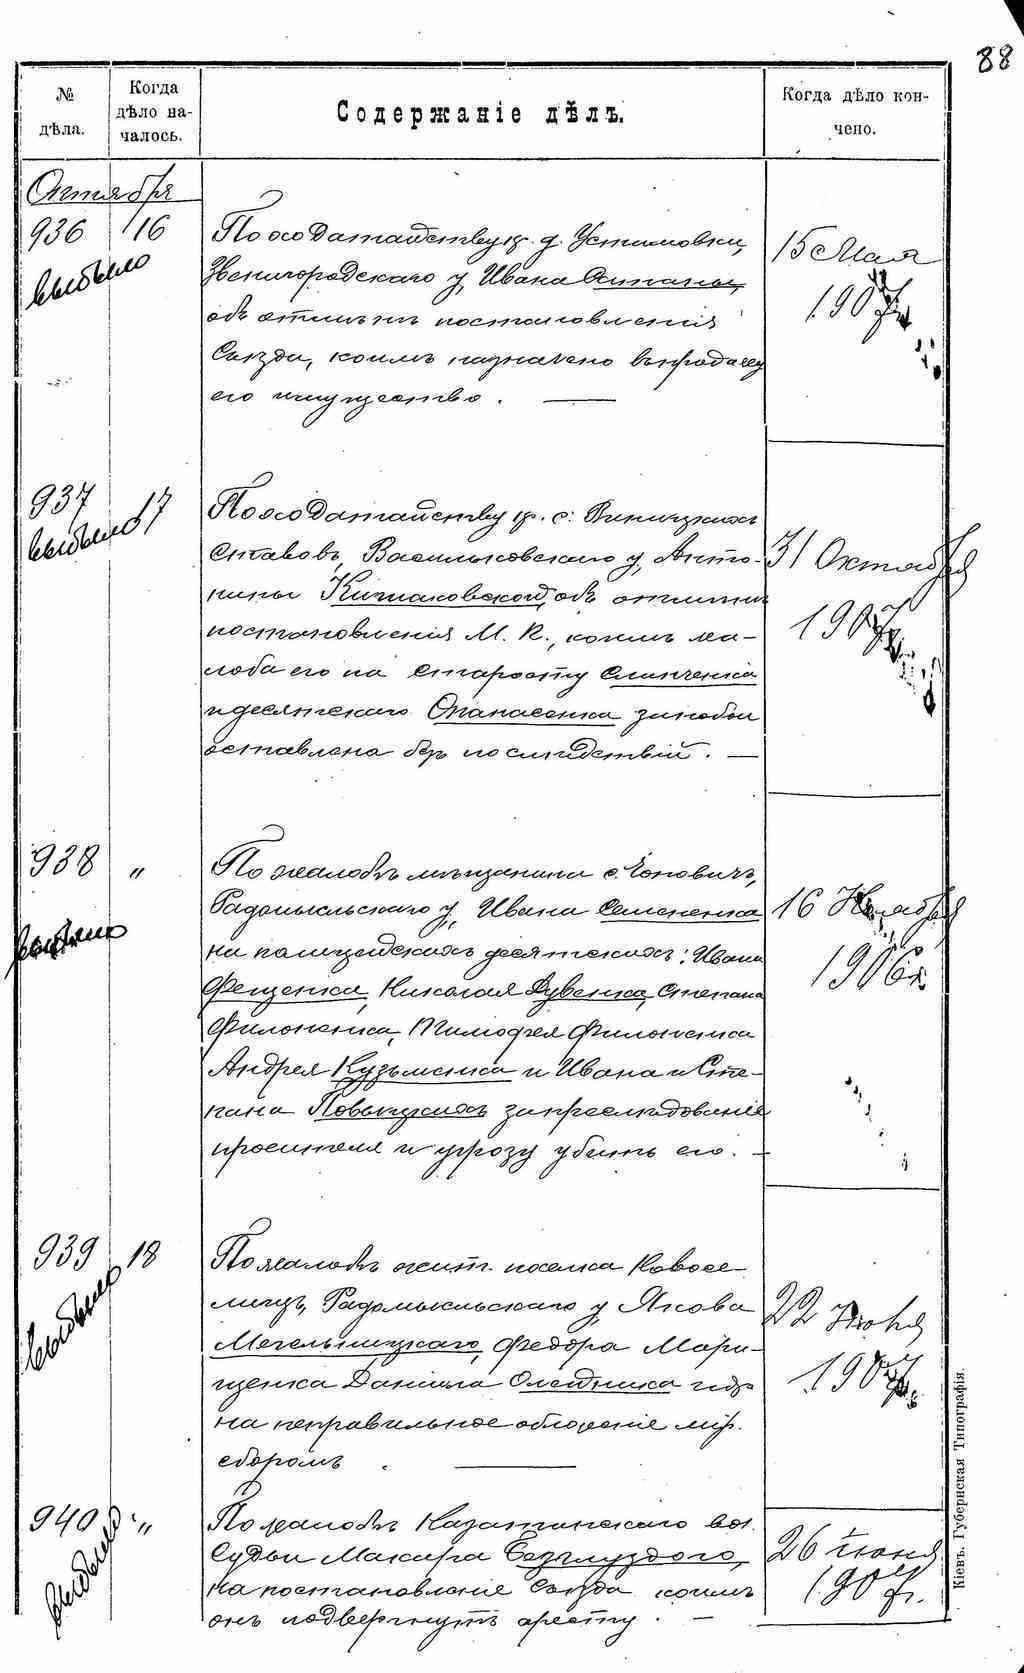 88
№ дѣла.
Когда дѣло началось.
Содержаніе дѣлъ.
Когда дѣло кончено.
Октября
936 16
выбыло
По ходатайству кр. д. Устимовки,
Звенигородскаго у, Ивана
объ отмѣнѣ постановленія
Съѣзда, коимъ назначено въ продажу
его имущество.
15 Мая
1907 г.
937 17
выбыло
По ходатайству кр. с. Винницкихъ
Ставовъ, Васильковскаго у, Анто-
нины объ отмѣнѣ
постановленія М. П., коимъ жа-
лоба его на старосту Слипченка
и десятскаго Опанасенка за побои
оставлена безъ послѣдствій.
31 Октября
1907 г.
938 "
выбыло
По жалобѣ мѣщанина с. Чоповичъ,
Радомысльскаго у, Ивана Семененка
на полицейскихъ десятскихъ: Ивана
Фещенка, Николая Дубенка, Степана
Филоненка, Тимофея Филоненка
Андрея Кузьменка и Ивана и Сте-
пана за преслѣдованіе
просителя и угрозу убить его.
16 Ноября
1906 г.
939 18
выбыло
По жалобѣ жит. поселка Новосе-
лицы, Радомысльскаго у, Якова
Мегельницкаго, Федора Мари-
щенка Даніила Олейника и др.
на неправильное обложеніе мір.
сборомъ.
22 Июня
1907 г.
940 "
выбыло
По жалобѣ Казатинскаго вол.
Судьи Макара Безглуздого,
на постановленіе Съѣзда коимъ
онъ подвергнутъ аресту.
26 июня
1907 г.
Кіевъ. Губернская Типографія.